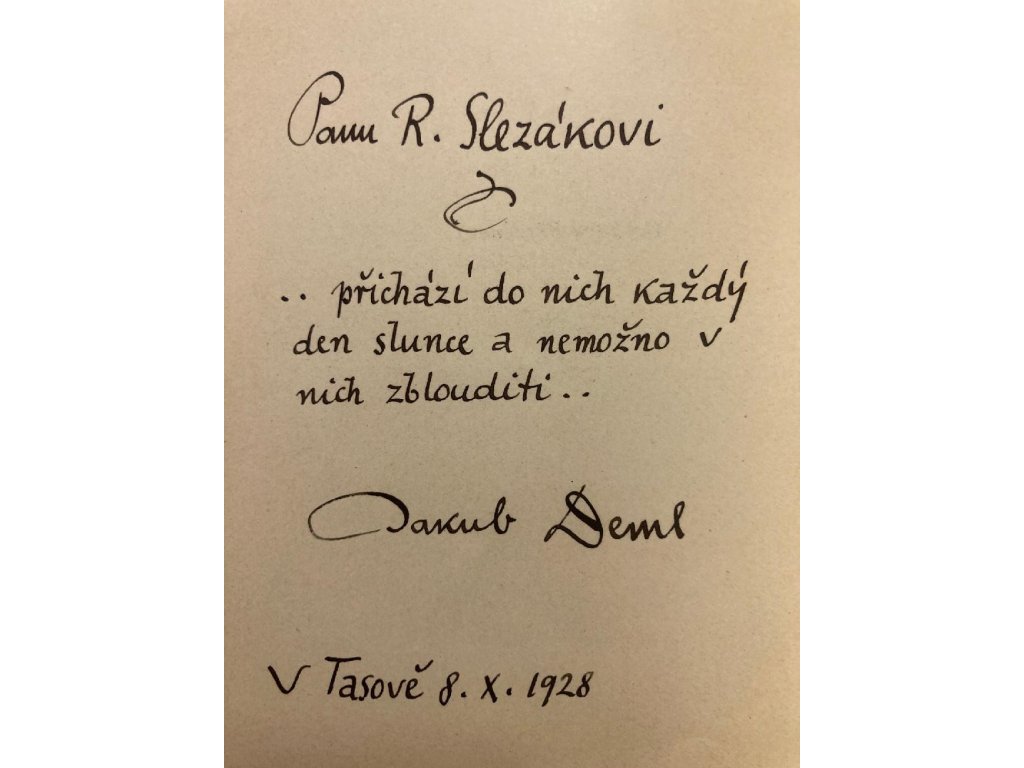 Panu R. Slezákovi
.. přichází do nich každý
den slunce a nemožno v
nich zblouditi..
Jakub Deml
V Tasově 8. X. 1928